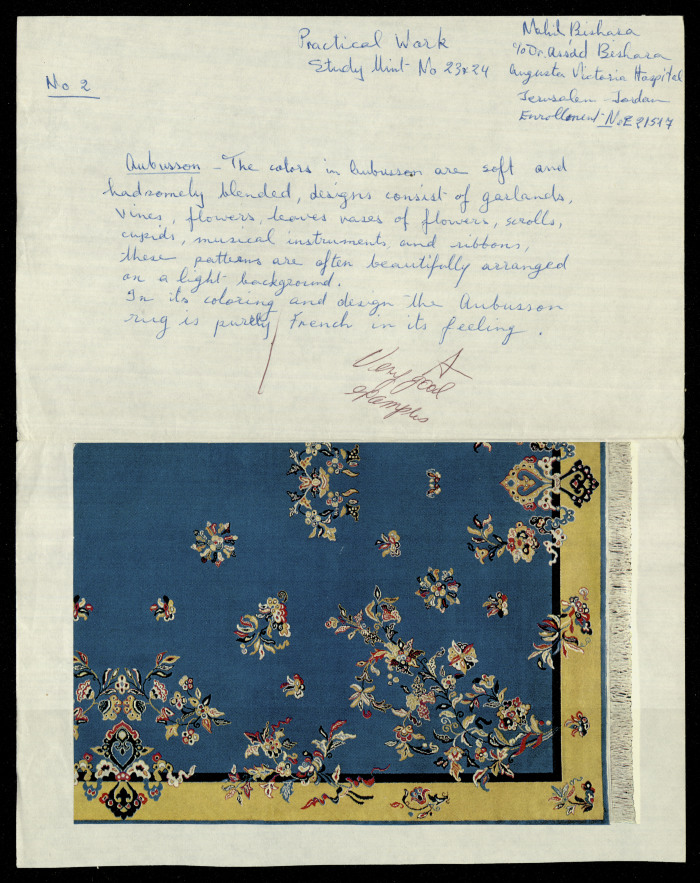 No 2
Practical Work
Study Unit No 23 & 24
Mahil Bishara
c/o Dr. Assad Bishara
Augusta Victoria Hospital
Jerusalem - Jordan
Enrollement No E 21517
Aubusson - The colors in Aubusson are soft and
hadsomely blended, designs consist of garlands,
vines, flowers, leaves vases of flowers, scrolls,
cupids, musical instruments, and ribbons,
these patterns are often beautifully arranged
on a light background.
In its coloring and design the Aubusson
rug is purely French in its feeling.
A
Very good
examples